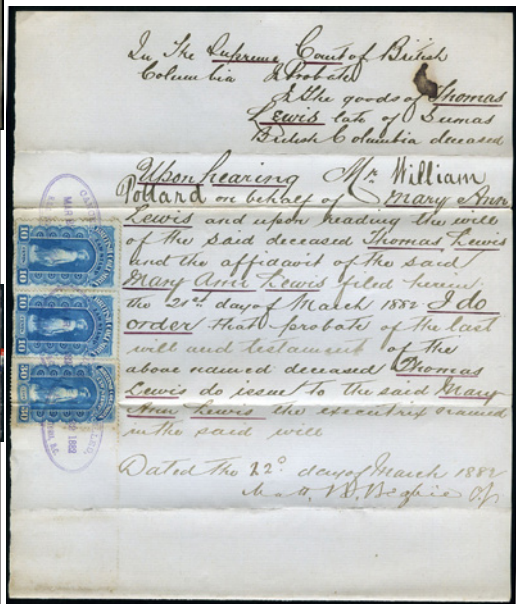 In The Supreme Court of British
Columbia In Probate
In The goods of Thomas
Lewis late of Sumas
British Columbia deceased
Upon hearing Mr William
Pollard on behalf of Mary Ann
Lewis and upon reading the will
of the said deceased Thomas Lewis
and the affidavit of the said
Mary Ann Lewis filed herein
the 21st day of March 1882 I do
order that probate of the last
will and testament of the
above named deceased Thomas
Lewis do issue to the said Mary
Ann Lewis the executrix named
in the said will
Dated the 22d day of March 1882
Matt. B. Begbie CJ.
10 10
10 10
30 30
1882